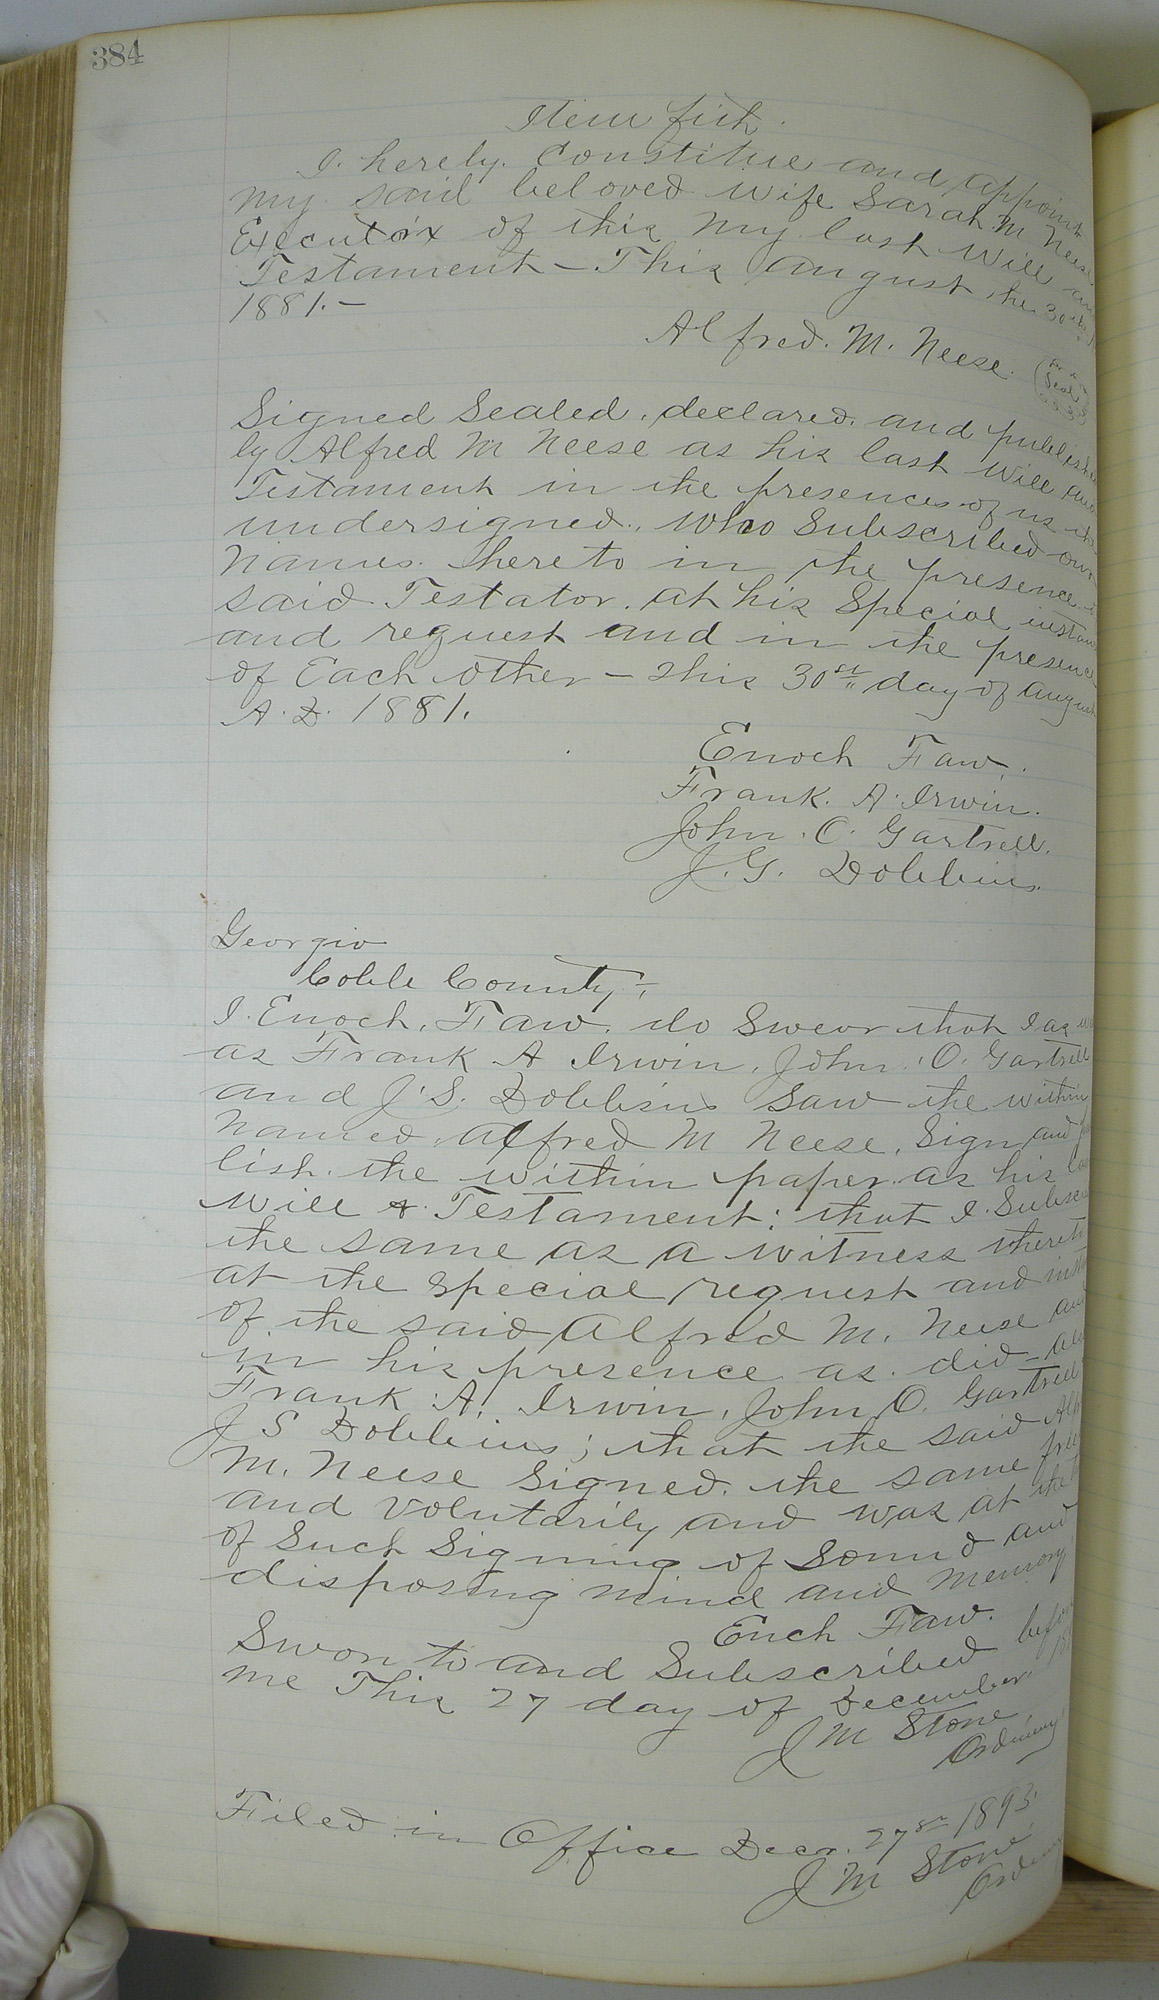 384
Item fith.
I. hereby. Constitue and appoint
my said beloved wife Sarah M Neese
Executoix of this my last will an
Testament – This August the 30th
1881.–
Alfred. M. Neese.
Seal
Signed Sealed, declared, and publishe
by Alfred M Neese as his last will and
Testament in the presences of us the
undersigned, who Subscribed our
names. hereto in the presence
said Testator. at his Special instan
and request and in the presence
of Each other – This 30st day of August
A.D. 1881.
Enoch Faw.
Frank. A. Irwin.
John. O. Gartrell.
J. G. Dobbins.
Georgia
Cobb County,
I. Enoch. Faw. do Swear that I as w
as Frank A Irwin, John. O. Gartrell
and J. S. Dobbins saw the within
Named, Alfred M Neese, Sign and
lish the within paper as his
will & Testament: that I. Subsc
the same as a witness thereto
at the special request and inst
of the said Alfred M. Neese and
in his presence as did
Frank A. Irwin, John O. Gartrell
J S Dobbins; that the said Alf
M. Neese Signed. the same free
and volutarily and was at the
of Such Signing of Sound and
disposing mind and memory
Ench Faw.
Swon to and Subscribed befo
me This 27 day of December
J M Stone,
Ordinary
Filed in Office Decr. 27st 1893.
J M Stone